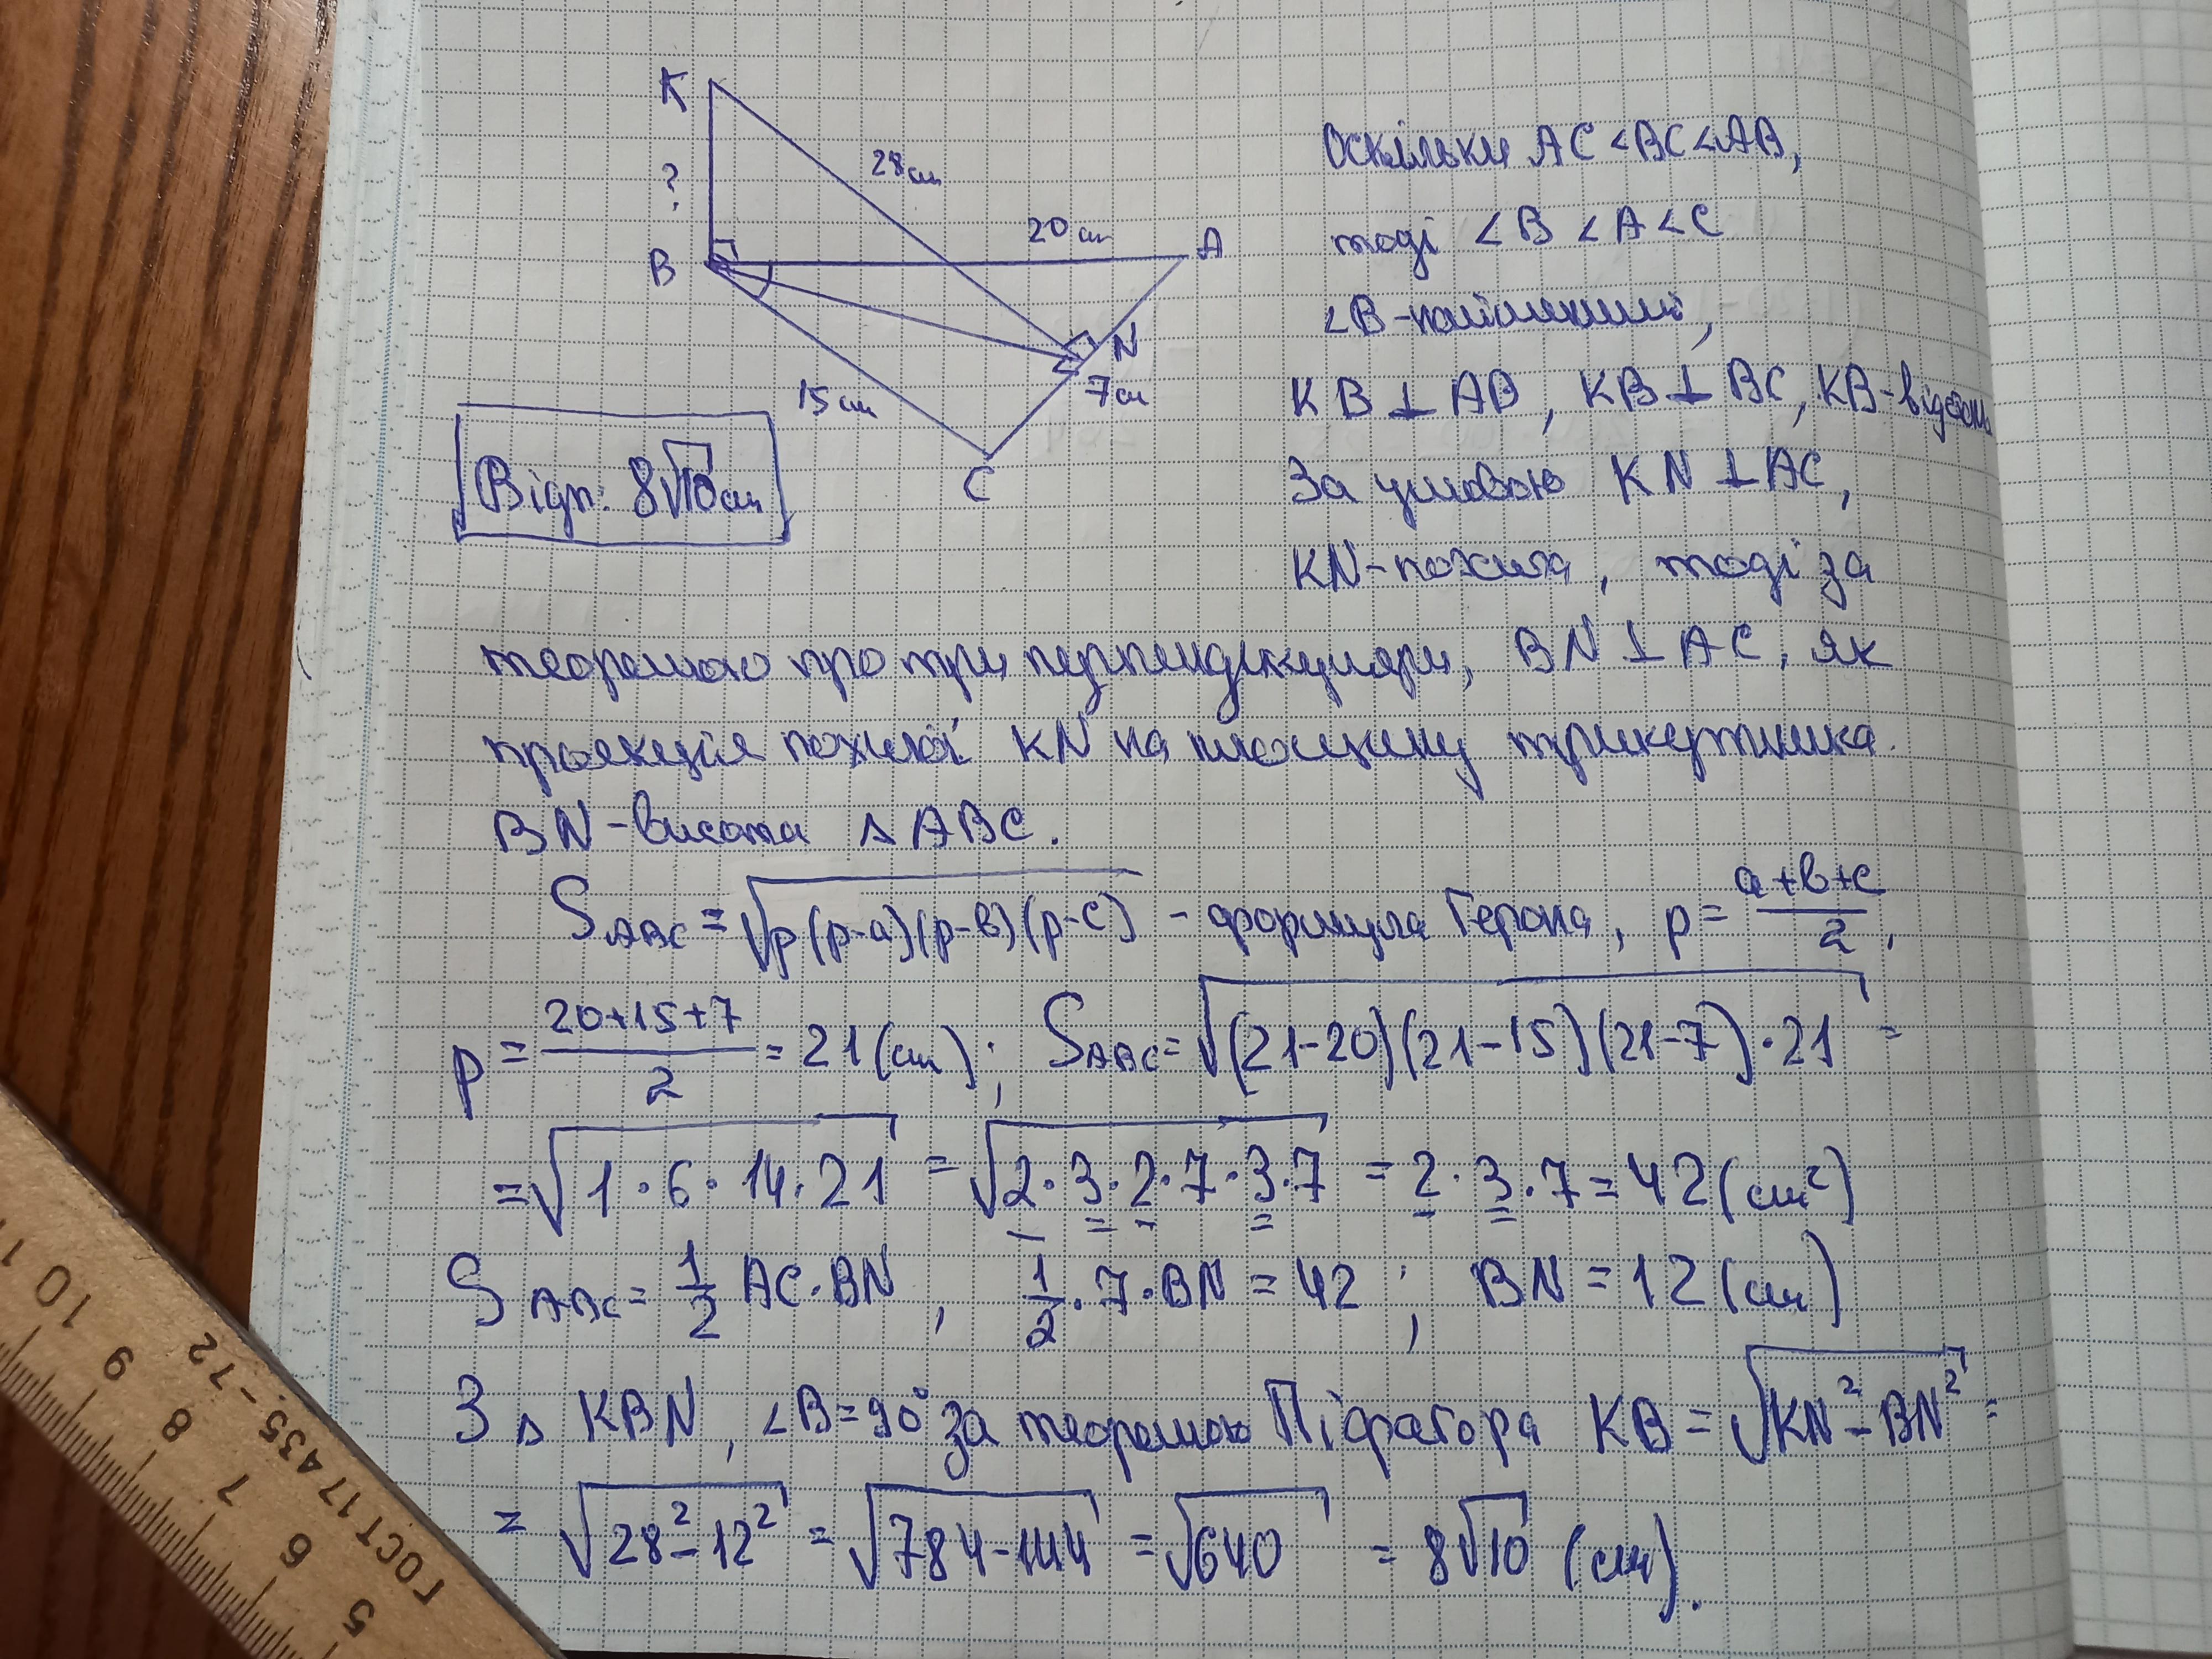 K
28см
?
20см
A
B
N
7см
15см
C
Відп: 8√10см
Оскільки AC<BC<AB,
тоді ∠B <A<C
∠B-найменший,
KB⊥AB, KB⊥BC, KB-відстань
За умовою KN⊥AC,
KN-похила, тоді за
теоремою про три перпендикуляри, BN⊥AC, як
проекція похилої KN на площину трикутника.
BN-висота △ABC.
S_ABC=√(p(p-a)(p-в)(p-c)) - формула Герона, p=(a+в+c)/2,
p=(20+15+7)/2=21(см); S_ABC=√((21-20)(21-15)(21-7)·21)=
=√(1·6·14·21)=√(2·3·2·7·3·7)=2·3·7=42(см²)
S_ABC=1/2 AC·BN, 1/2·7·BN=42; BN=12(см)
З △KBN, ∠B=90° за теоремою Піфагора KB=√(KN²-BN²)=
=√(28²-12²)=√(784-144)=√640=8√10 (см).
10
9
8
7
6
5
ГОСТ 17435-72